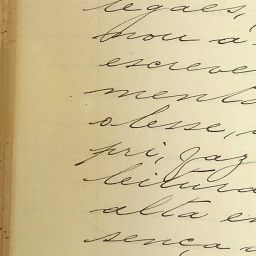 legaes,
nou a
escreve
mento
olesse,
pri, faz
leitura
alta e
sença